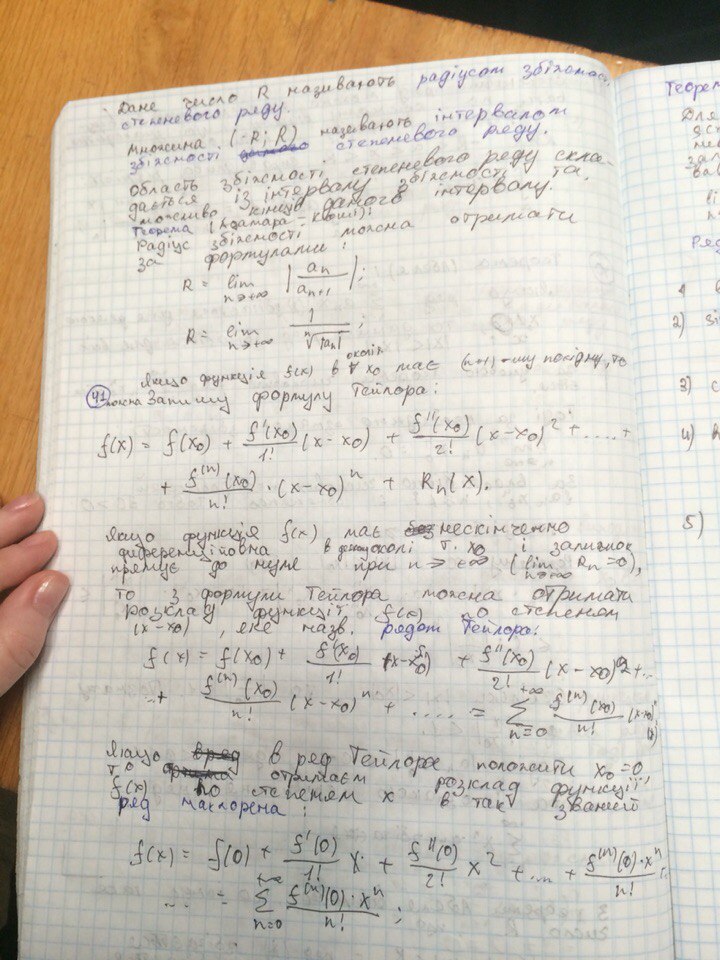 Дане число R називають радіусом збіжності
степеневого ряду.
Множина (-R; R) називають інтервалом
збіжності степеневого ряду.
Область збіжності степеневого ряду скла-
дається із інтервалу збіжності та,
можливо кінців даного інтервалу.
Теорема (Адамара - Коши):
Радіус збіжності можна отримати
за формулами:
R = lim n→+∞ |an / an+1|;
R = lim n→+∞ 1 / ⁿ√|an|;
Якщо функція f(x) в околі т x0 має (n+1)-шу похідну, то
41 можна запишу формулу Тейлора:
f(x) = f(x0) + f'(x0)/1! (x-x0) + f''(x0)/2! (x-x0)² + ..... +
+ f⁽ⁿ⁾(x0)/n! · (x-x0)ⁿ + Rn(x).
Якщо функція f(x) має нескінченно
диференційовна в околі т. x0 і залишок
прямує до нуля при n→+∞ (lim n→+∞ Rn=0),
то з формули Тейлора можна отримати
розклад функції f(x) по степеням
(x-x0), яке назв. рядом Тейлора:
f(x) = f(x0) + f'(x0)/1! (x-x0) + f''(x0)/2! (x-x0)² + ...
..+ f⁽ⁿ⁾(x0)/n! (x-x0)ⁿ + ..... = +∞ ∑ n=0 f⁽ⁿ⁾(x0)/n! (x-x0)ⁿ
Якщо в ряд Тейлора положити x0=0,
то отримаєм розклад функції
f(x) по степеням x в так званий
ряд маклорена:
f(x) = f(0) + f'(0)/1! x + f''(0)/2! x² + ... + f⁽ⁿ⁾(0)·xⁿ/n! +
.... = +∞ ∑ n=0 f⁽ⁿ⁾(0)·xⁿ/n! ;
Теорем
Для
Ряд
2)
3) с
4)
5)